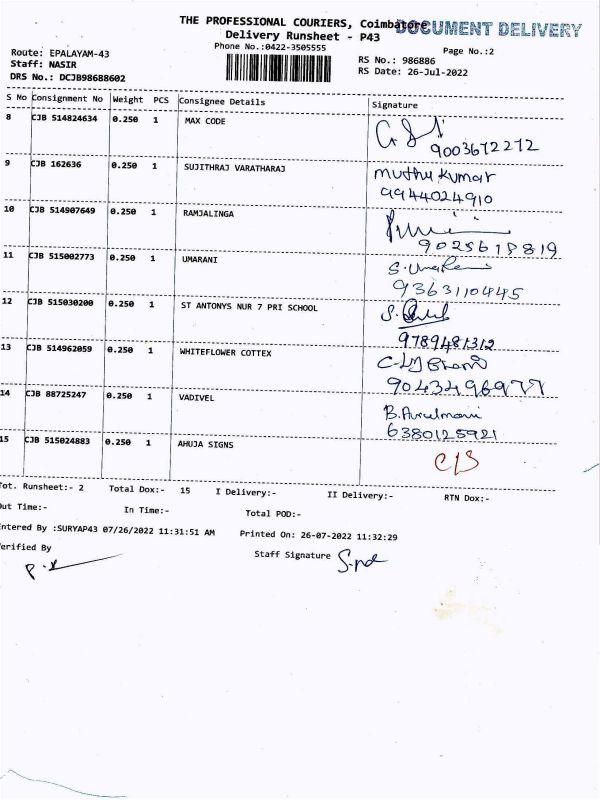 THE PROFESSIONAL COURIERS, Coimbatore
DOCUMENT DELIVERY
Delivery Runsheet - P43
Phone No.:0422-3505555
Page No.:2
Route: EPALAYAM-43
Staff: NASIR
DRS No.: DCJB98688602
RS No.: 986886
RS Date: 26-Jul-2022
S No Consignment No Weight PCS Consignee Details Signature
8 CJB 514824634 0.250 1 MAX CODE
9003672272
9 CJB 162636 0.250 1 SUJITHRAJ VARATHARAJ Muthu Kumar
9944024910
10 CJB 514907649 0.250 1 RAMJALINGA
9025618819
11 CJB 515002773 0.250 1 UMARANI S. UmaRani
9363110445
12 CJB 515030200 0.250 1 ST ANTONYS NUR 7 PRI SCHOOL
9789481312
13 CJB 514962059 0.250 1 WHITEFLOWER COTTEX
9043496977
14 CJB 88725247 0.250 1 VADIVEL B. Arulmani
6380125921
15 CJB 515024883 0.250 1 AHUJA SIGNS
Tot. Runsheet:- 2 Total Dox:- 15 I Delivery:- II Delivery:- RTN Dox:-
Out Time:- In Time:- Total POD:-
Entered By :SURYAP43 07/26/2022 11:31:51 AM Printed On: 26-07-2022 11:32:29
Verified By Staff Signature